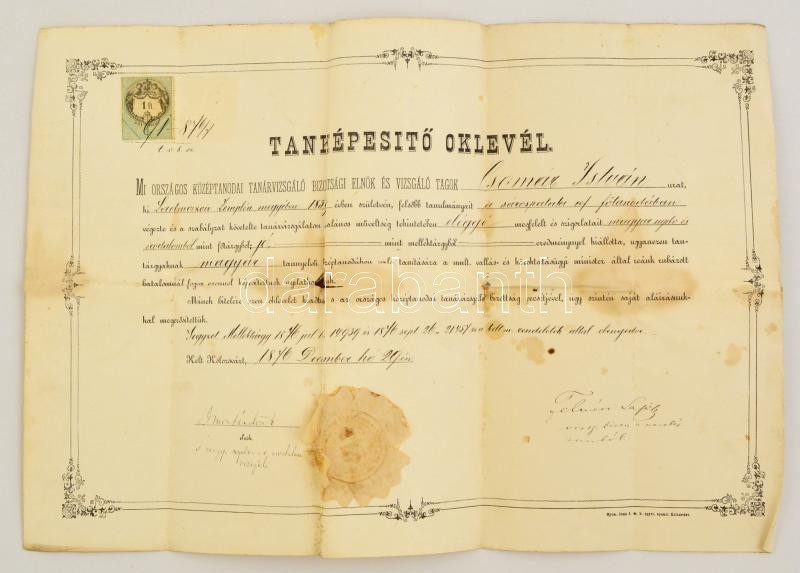 1 ft.
1876/7
TANKÉPESITŐ OKLEVÉL.
MI ORSZÁGOS KÖZÉPTANODAI TANÁRVIZSGÁLÓ BIZOTSÁGI ELNÖK ÉS VIZSGÁLÓ TAGOK Csomár István urat,
ki Zemplén megyében évben születvén, felsőbb tanulmányait a sárospataki ref. főtanodában
végezte és a szabályzat követelte tanárvizsgálatán általános műveltség tekintetében eléggé megfelelt és szigorlatait magyar nyelv és
irodalomból mint főtárgyból jó mint melléktárgyból eredménynyel kiállotta, ugyanezen tan-
tárgyaknak magyar tannyelvű középtanodákon való tanítására a mult. vallás- és közoktatásügyi minister által reánk ruházott
hatalomnál fogva ezennel képesítettnek nyilatkoztatjuk.
Minek hiteléül ezen oklevelet kiadtuk s az országos középtanodai tanárvizsgáló bizottság pecsétjével, úgy szintén saját aláírásunk-
kal megerősítettük.
1876 jul. 14939 és 1876 sept 26. 21457 sz. a. kelt m. rendeletek által elengedve.
Kelt Kolozsvárt, 1876 December hó 29én
elnök
darabanth
Nyom. Kolozsvárt.